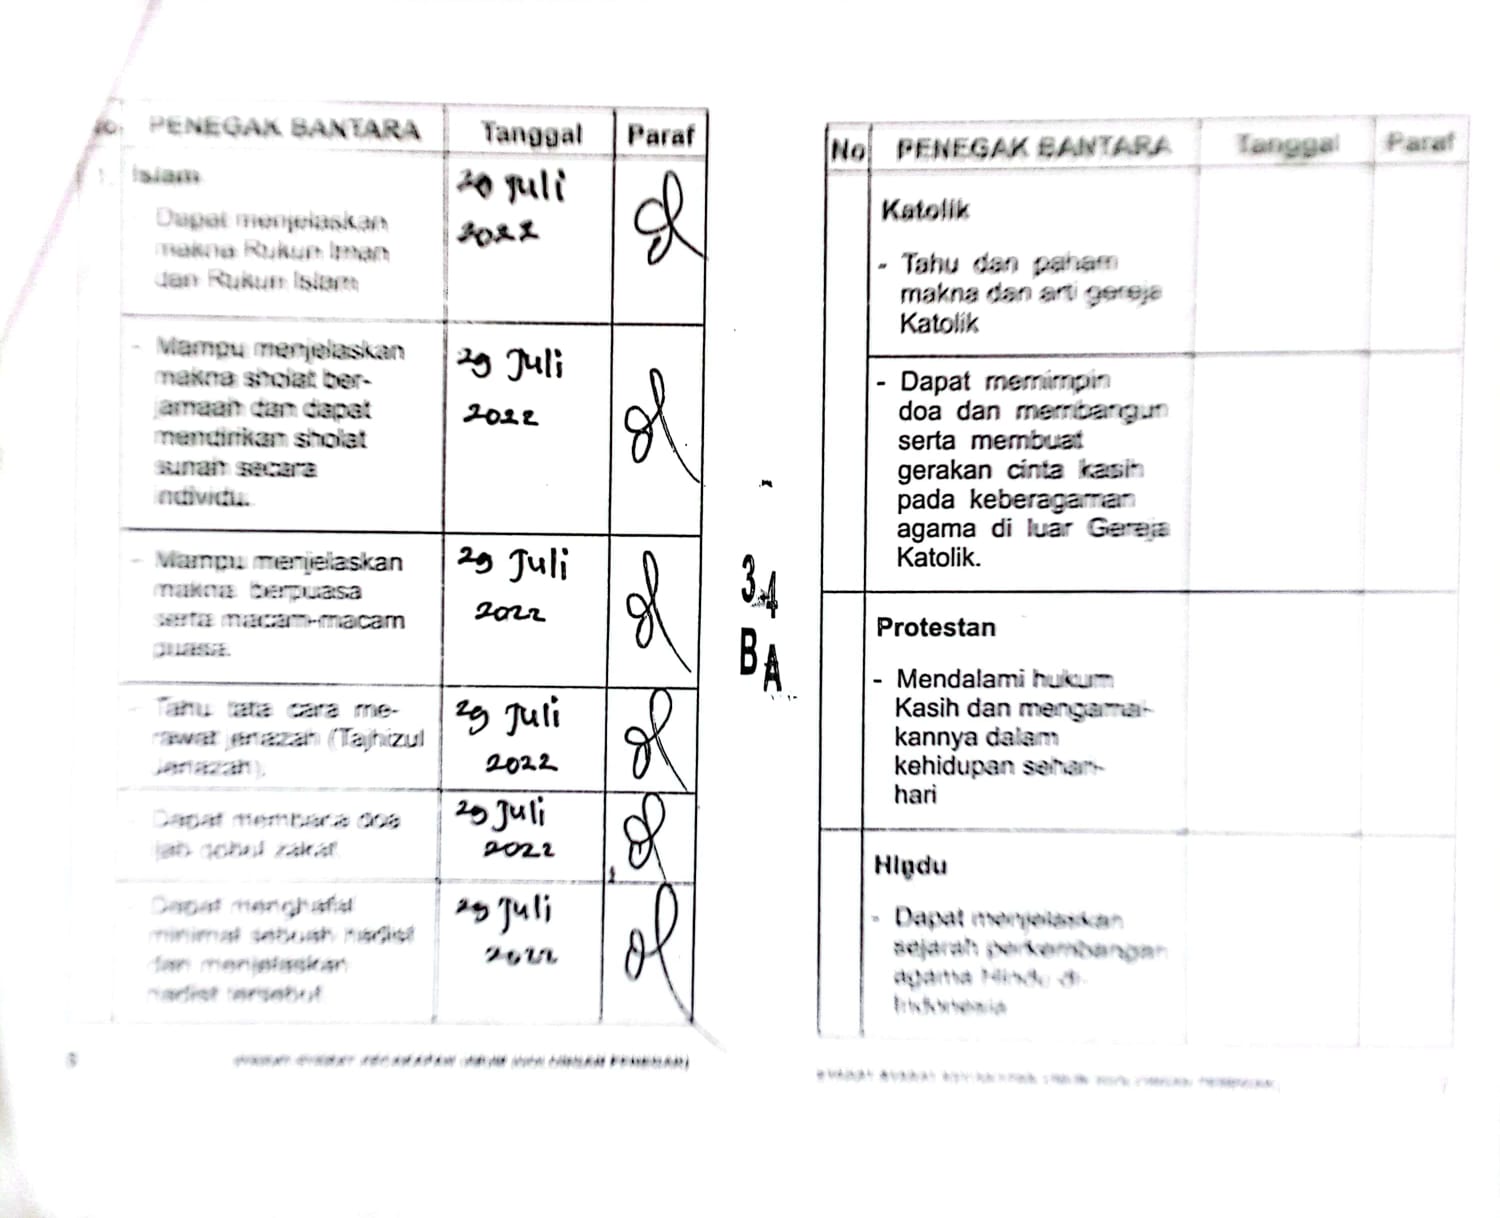 No. PENEGAK BANTARA Tanggal Paraf
1. Islam
Dapat menjelaskan
makna Rukun Iman
dan Rukun Islam
20 Juli
2022
- Mampu menjelaskan
makna sholat ber-
jamaah dan dapat
mendirikan sholat
sunah secara
individu.
29 Juli
2022
- Mampu menjelaskan
makna berpuasa
serta macam-macam
puasa.
29 Juli
2022
- Tahu tata cara me-
rawat jenazah (Tajhizul
Jenazah).
29 Juli
2022
- Dapat membaca doa
ijab qobul zakat
29 Juli
2022
- Dapat menghafal
minimal sebuah hadist
dan menjelaskan
hadist tersebut
29 Juli
2022
-
3.4
BA
No PENEGAK BANTARA Tanggal Paraf
Katolik
- Tahu dan paham
makna dan arti gereja
Katolik
- Dapat memimpin
doa dan membangun
serta membuat
gerakan cinta kasih
pada keberagaman
agama di luar Gereja
Katolik.
Protestan
- Mendalami hukum
Kasih dan mengamal-
kannya dalam
kehidupan sehari-
hari
Hindu
- Dapat menjelaskan
sejarah perkembangan
agama Hindu di
Indonesia